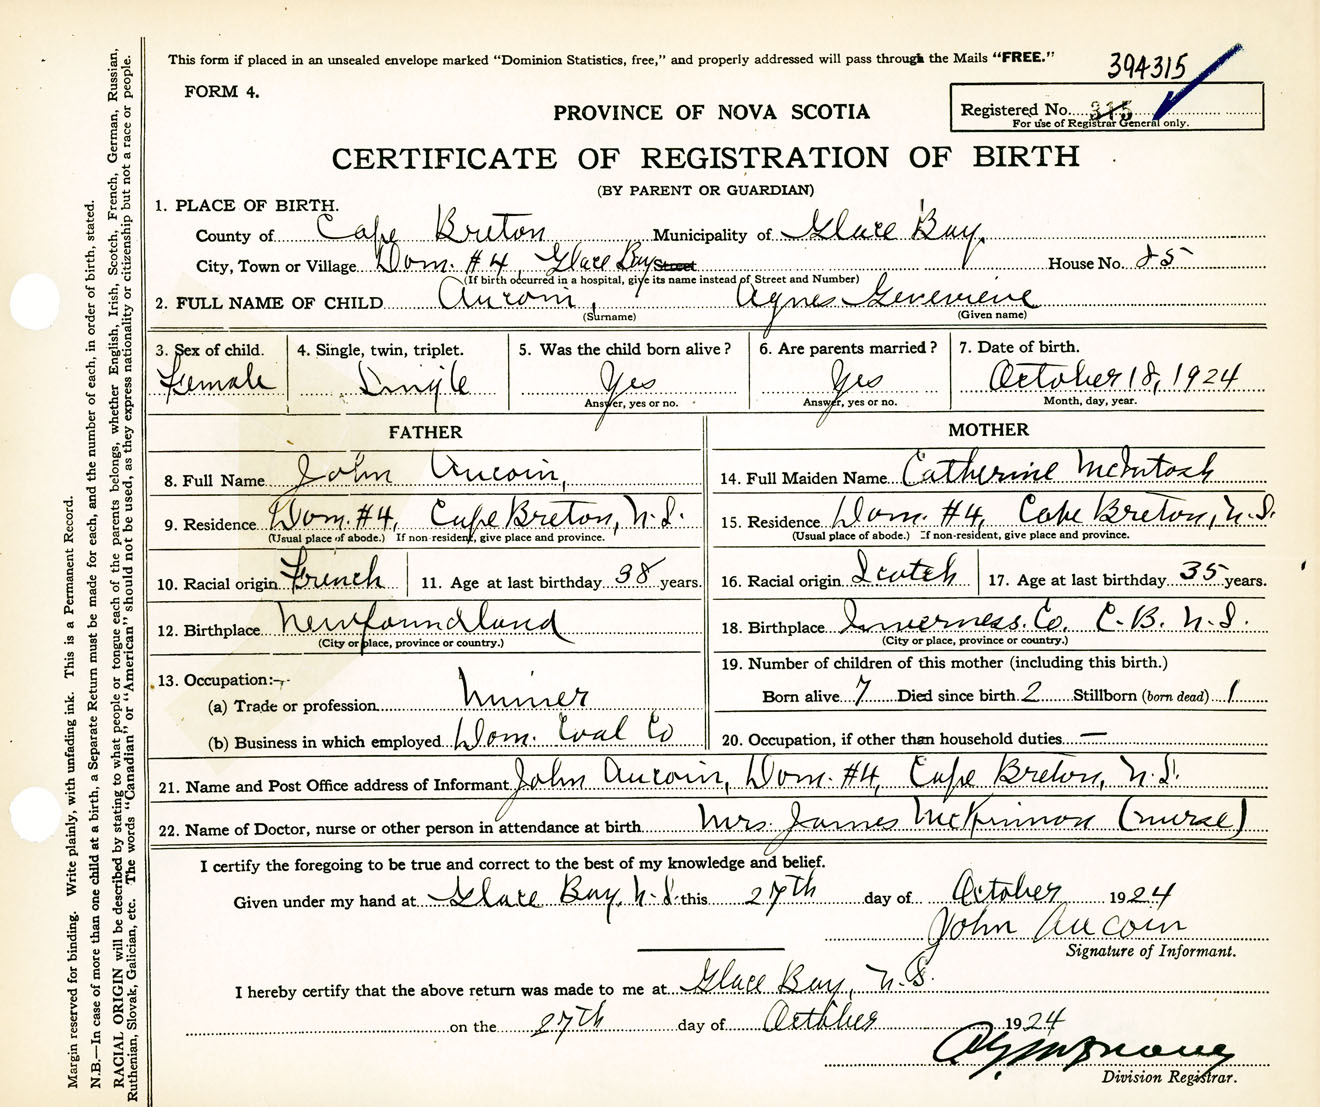 This form if placed in an unsealed envelope marked "Dominion Statistics, free," and properly addressed will pass through the Mails "FREE."
394315
FORM 4.
PROVINCE OF NOVA SCOTIA
Registered No. 315
For use of Registrar General only.
CERTIFICATE OF REGISTRATION OF BIRTH
(BY PARENT OR GUARDIAN)
1. PLACE OF BIRTH.
County of Cape Breton Municipality of Glace Bay
City, Town or Village Dom. #4, Glace Bay Street House No. 25
(If birth occurred in a hospital, give its name instead of Street and Number)
2. FULL NAME OF CHILD Aucoin, Agnes Genevieve
(Surname) (Given name)
3. Sex of child. 4. Single, twin, triplet. 5. Was the child born alive? 6. Are parents married? 7. Date of birth.
Female Single Yes Yes October 18, 1924
Answer, yes or no. Answer, yes or no. Month, day, year.
FATHER MOTHER
8. Full Name John Aucoin, 14. Full Maiden Name Catherine McIntosh
9. Residence Dom. #4, Cape Breton, N.S. 15. Residence Dom. #4, Cape Breton, N.S.
(Usual place of abode.) If non-resident, give place and province. (Usual place of abode.) If non-resident, give place and province.
10. Racial origin French 11. Age at last birthday 38 years. 16. Racial origin Scotch 17. Age at last birthday 35 years.
12. Birthplace Newfoundland 18. Birthplace Inverness. Co. C.B. N.S.
(City or place, province or country.) (City or place, province or country.)
13. Occupation:— 19. Number of children of this mother (including this birth.)
(a) Trade or profession Miner Born alive 7 Died since birth 2 Stillborn (born dead) 1
(b) Business in which employed Dom. Coal Co 20. Occupation, if other than household duties —
21. Name and Post Office address of Informant John Aucoin, Dom. #4, Cape Breton, N.S.
22. Name of Doctor, nurse or other person in attendance at birth Mrs. James McKinnon (nurse)
I certify the foregoing to be true and correct to the best of my knowledge and belief.
Given under my hand at Glace Bay, N.S. this 27th day of October 1924
John Aucoin
Signature of Informant.
I hereby certify that the above return was made to me at Glace Bay, N.S.
on the 27th day of October 1924
Division Registrar.
Margin reserved for binding. Write plainly, with unfading ink. This is a Permanent Record.
N.B.—In case of more than one child at a birth, a Separate Return must be made for each, and the number of each, in order of birth, stated.
RACIAL ORIGIN will be described by stating to what people or tongue each of the parents belongs, whether English, Irish, Scotch, French, German, Russian,
Ruthenian, Slovak, Galician, etc. The words "Canadian" or "American" should not be used, as they express nationality or citizenship but not a race or people.